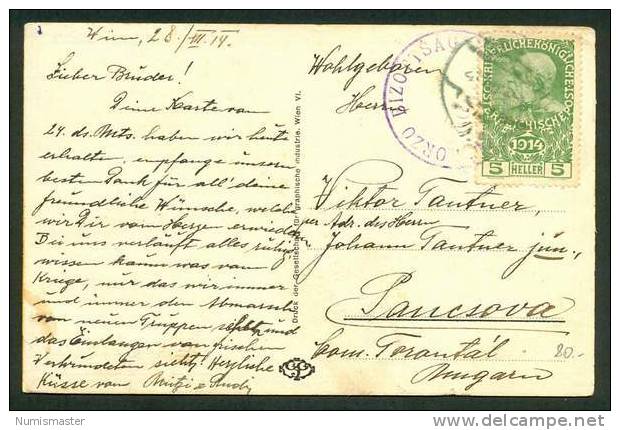 Wien, 28./VIII.14.
Lieber Bruder!
Deine Karte vom
24. ds. Mts. haben wir heute
erhalten, empfange unsern
besten Dank für all' deine
freundliche Wünsche, welche
wir Dir vom Herzen erwiedern
Bei uns verläuft alles ruhig,
wissen kaum was vom
Kriege, nur das wir immer
und immer den Abmarsch
von neuen Truppen seht und
das Einlangen von frischen
Verwundeten sieht. Herzliche
Küsse von Mitzi & Rudi
Druck der Gesellschaft für graphische Industrie, Wien VI.
Wohlgeboren
Herrn
Viktor Tautner,
per Adr. des Herrn
Johann Tautner jun.,
Pancsova
Com. Torontál
Ungarn
20.-
BIZOTTSÁG
KAISERLICHE KÖNIGLICHE
ÖSTERREICHISCHE
1914
5 HELLER 5
Numismaster
delcampe.net